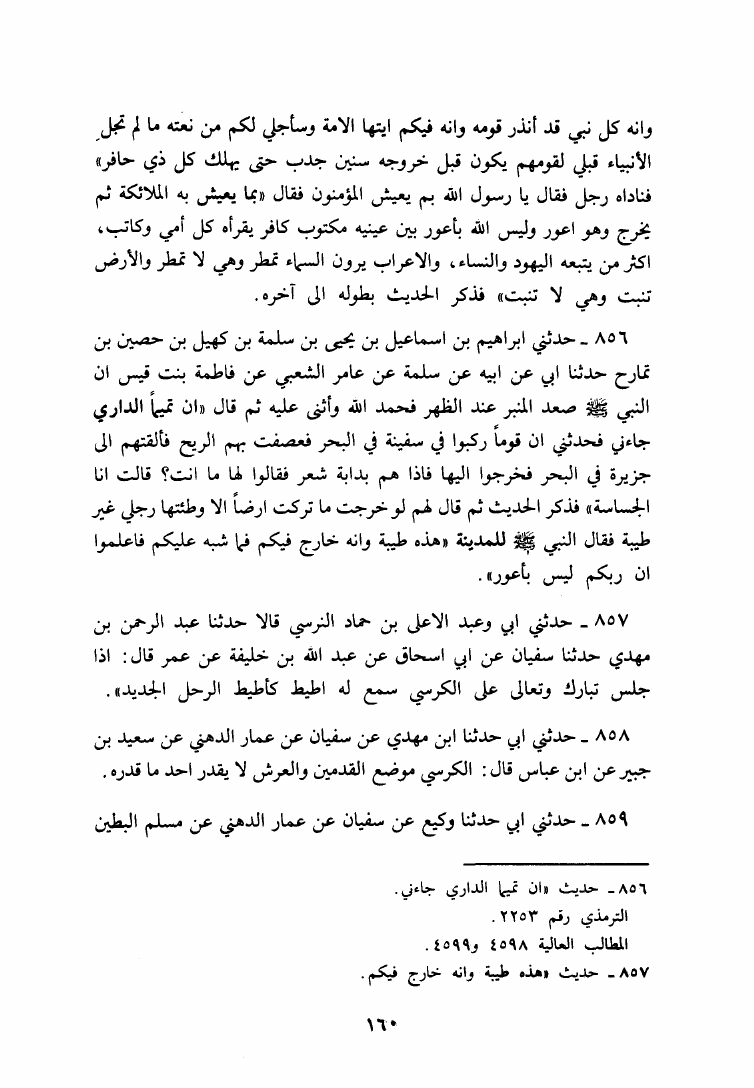 وانه كل نبي قد أنذر قومه وانه فيكم ايتها الامة وسأجلي لكم من نعته ما لم تجلِ
الأنبياء قبلي لقومهم يكون قبل خروجه سنين جدب حتى يهلك كل ذي حافر»
فناداه رجل فقال يا رسول الله بم يعيش المؤمنون فقال «بما يعيش به الملائكة ثم
يخرج وهو اعور وليس الله بأعور بين عينيه مكتوب كافر يقرأه كل أمي وكاتب،
اكثر من يتبعه اليهود والنساء، والاعراب يرون السماء تمطر وهي لا تمطر والأرض
تنبت وهي لا تنبت» فذكر الحديث بطوله الى آخره.
٨٥٦ ـ حدثني ابراهيم بن اسماعيل بن يحيى بن سلمة بن كهيل بن حصين بن
تمارح حدثنا ابي عن ابيه عن سلمة عن عامر الشعبي عن فاطمة بنت قيس ان
النبي ﷺ صعد المنبر عند الظهر فحمد الله وأثنى عليه ثم قال «ان تميماً الداري
جاءني فحدثني ان قوماً ركبوا في سفينة في البحر فعصفت بهم الريح فألقتهم الى
جزيرة في البحر فخرجوا اليها فاذا هم بدابة شعر فقالوا لها ما انت؟ قالت انا
الجساسة» فذكر الحديث ثم قال لهم لو خرجت ما تركت ارضاً الا وطئتها رجلي غير
طيبة فقال النبي ﷺ للمدينة «هذه طيبة وانه خارج فيكم فما شبه عليكم فاعلموا
ان ربكم ليس بأعور».
٨٥٧ ـ حدثني ابي وعبد الاعلى بن حماد النرسي قالا حدثنا عبد الرحمن بن
مهدي حدثنا سفيان عن ابي اسحاق عن عبد الله بن خليفة عن عمر قال: اذا
جلس تبارك وتعالى على الكرسي سمع له اطيط كأطيط الرحل الجديد».
٨٥٨ ـ حدثني ابي حدثنا ابن مهدي عن سفيان عن عمار الدهني عن سعيد بن
جبير عن ابن عباس قال: الكرسي موضع القدمين والعرش لا يقدر احد ما قدره.
٨٥٩ ـ حدثني ابي حدثنا وكيع عن سفيان عن عمار الدهني عن مسلم البطين
٨٥٦ ـ حديث «ان تميما الداري جاءني.
الترمذي رقم ٢٢٥٣.
المطالب العالية ٤٥٩٨ و٤٥٩٩.
٨٥٧ ـ حديث «هذه طيبة وانه خارج فيكم.
١٦٠